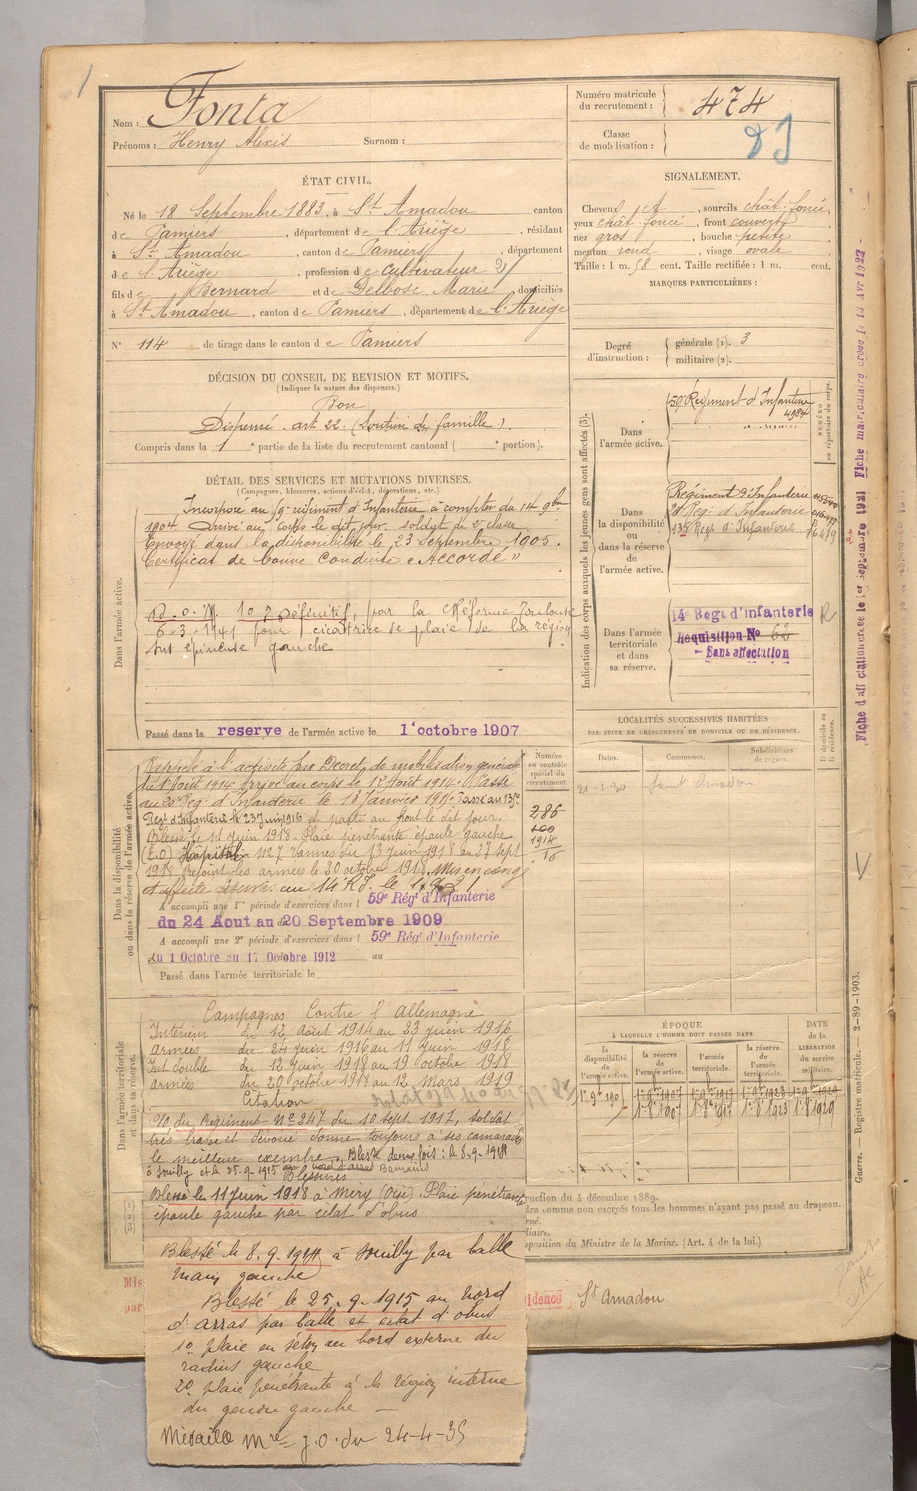 1
Nom : Fonta
Prénoms : Henry Alexis Surnom :
Numéro matricule du recrutement : 474
Classe de mobilisation :
ÉTAT CIVIL.
Né le 18 Septembre 1883, à St Amadou canton
de Pamiers, département de l'Ariège, résidant
à St Amadou, canton de Pamiers, département
de l'Ariège, profession de Cultivateur
fils de Bernard et de Delbosc Marie domiciliés
à St Amadou, canton de Pamiers, département de l'Ariège
N° 114 de tirage dans le canton de Pamiers
SIGNALEMENT.
Cheveux, sourcils chât. foncé,
yeux chât. foncé, front couvert,
nez gros, bouche petite,
menton rond, visage ovale
Taille : 1 m. 58 cent. Taille rectifiée : 1 m. cent.
MARQUES PARTICULIÈRES :
Degré d'instruction : générale (1). 3
militaire (2).
DÉCISION DU CONSEIL DE REVISION ET MOTIFS.
(Indiquer la nature des dispenses.)
Bon
Dispensé art. 22. (Soutien de famille).
Compris dans la 1e partie de la liste du recrutement cantonal ( e portion).
DÉTAIL DES SERVICES ET MUTATIONS DIVERSES.
(Campagnes, blessures, actions d'éclat, décorations, etc.)
Dans l'armée active.
Incorporé au 59e régiment d'Infanterie à compter du 14 9bre
1904. Arrivé au corps le dit jour. soldat de 2e classe
Envoyé dans la disponibilité le 23 Septembre 1905.
Certificat de bonne Conduite "Accordé"
définitif, par la Réforme Toulouse
6-3-1941 pour cicatrice de plaie de la région
sus épineuse gauche
Passé dans reserve de l'armée active le 1er octobre 1907
Indication des corps auxquels les jeunes gens sont affectés (3).
Dans l'armée active. 59e Régiment d'Infanterie
4984
NUMÉRO au répertoire du corps.
Dans la disponibilité ou dans la réserve de l'armée active.
Régiment d'Infanterie
Reg. d'Infanterie
135 Regt d'Infanterie
Dans l'armée territoriale et dans sa réserve.
14e Regt d'infanterie
Requisition No 62
- Sans affectation
R
Fiche d'affectation créée le 1er Septembre 1921 Fiche matriculaire créée le 13 Avr 1927 -
LOCALITÉS SUCCESSIVES HABITÉES
PAR SUITE DE CHANGEMENTS DE DOMICILE OU DE RÉSIDENCE.
Dates. Communes. Subdivisions de région. D domicile ou R résidence.
Saint Amadou
Dans la disponibilité ou dans la réserve de l'armée active.
Numéro au contrôle spécial du recrutement
286
1914
Rappelé à l'activité par Decret de mobilisation générale
du 1er Août 1914 arrivé au corps le 12 Août 1914. Passé
au Reg. d'Infanterie le 18 Janvier 191 Passé au 135e
Regt d'Infanterie le 23 Juin 1916 et parti au front le dit jour.
Blessé le 11 Juin 1918. Plaie pénétrante épaule gauche
(E.O) Hôpital n° 7 Vannes du 13 Juin 1918 au 27 sept
1918 (rejoint les armées le 30 octobre 1918. Mis en congé
Affecté Réserve au 14e R.I. le
A accompli une 1re période d'exercices dans l 59e Rég' d'Infanterie
du 24 Aout au 20 Septembre 1909
A accompli une 2e période d'exercices dans l 59e Rég' d'Infanterie
du 1 Octobre au 17 Octobre 1912 au
Passé dans l'armée territoriale le
Dans l'armée territoriale et dans sa réserve.
Campagnes Contre l'Allemagne
Intérieur du 12 Août 1914 au 23 Juin 1916
armées du 24 Juin 1916 au 11 Juin 1918
Int double du 12 Juin 1918 au 19 octobre 1918
armées du 20 octobre 1918 au 12 Mars 1919
Citation
O/ du Régiment N° 247 du 10 sept. 1917, soldat
très brave et dévoué donne toujours à ses camarades
le meilleur exemple. Blessé deux fois : le 8-9-1914
à Souilly et le 25-9-1915 au nord d'Arras
Blessures
Blessé le 11 Juin 1918 à Méry (Oise) Plaie pénétrante
épaule gauche par éclat d'obus
Blessé le 8.9.1914 à Souilly par balle
main gauche
Blessé le 25.9.1915 au Nord
d'Arras par balle et éclat d'obus
1° plaie en séton au bord externe du
radius gauche
2° plaie pénétrante à la région interne
du genou gauche -
Médaille Mre J.O. du 24-4-35
ÉPOQUE
À LAQUELLE L'HOMME DOIT PASSER DANS
la disponibilité de l'armée active. la réserve de l'armée active. l'armée territoriale. la réserve de l'armée territoriale.
DATE de la LIBÉRATION du service militaire.
1er 8bre 1907 1er 8bre 1917 1er 8bre 1923 1er 8bre 1929
ruction du 4 décembre 1889.
dra comme non exercés tous les hommes n'ayant pas passé au drapeau.
eposition du Ministre de la Marine. (Art. 4 de la loi.)
Guerre. — Registre matricule. — 2-89-1903.
idence St Amadou